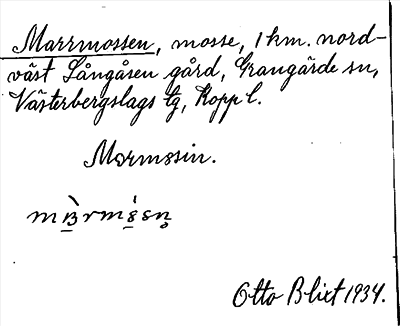 Marrmossen, mosse, 1 km. nord-
väst Långåsen gård, Grangärde sn,
Västerbergslags tg, Kopp l.
Marmosin.
Otto Blixt 1934.